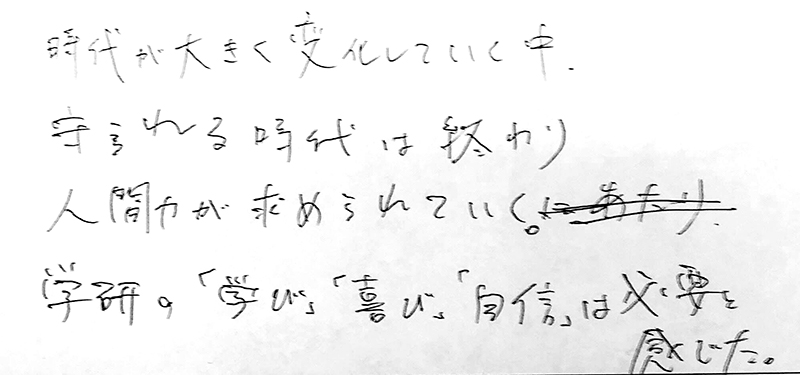 時代が大きく変化していく中、
守られる時代は終わり
人間力が求められていく。にあたり、
学研の「学び」「喜び」「自信」は必要と
感じた。